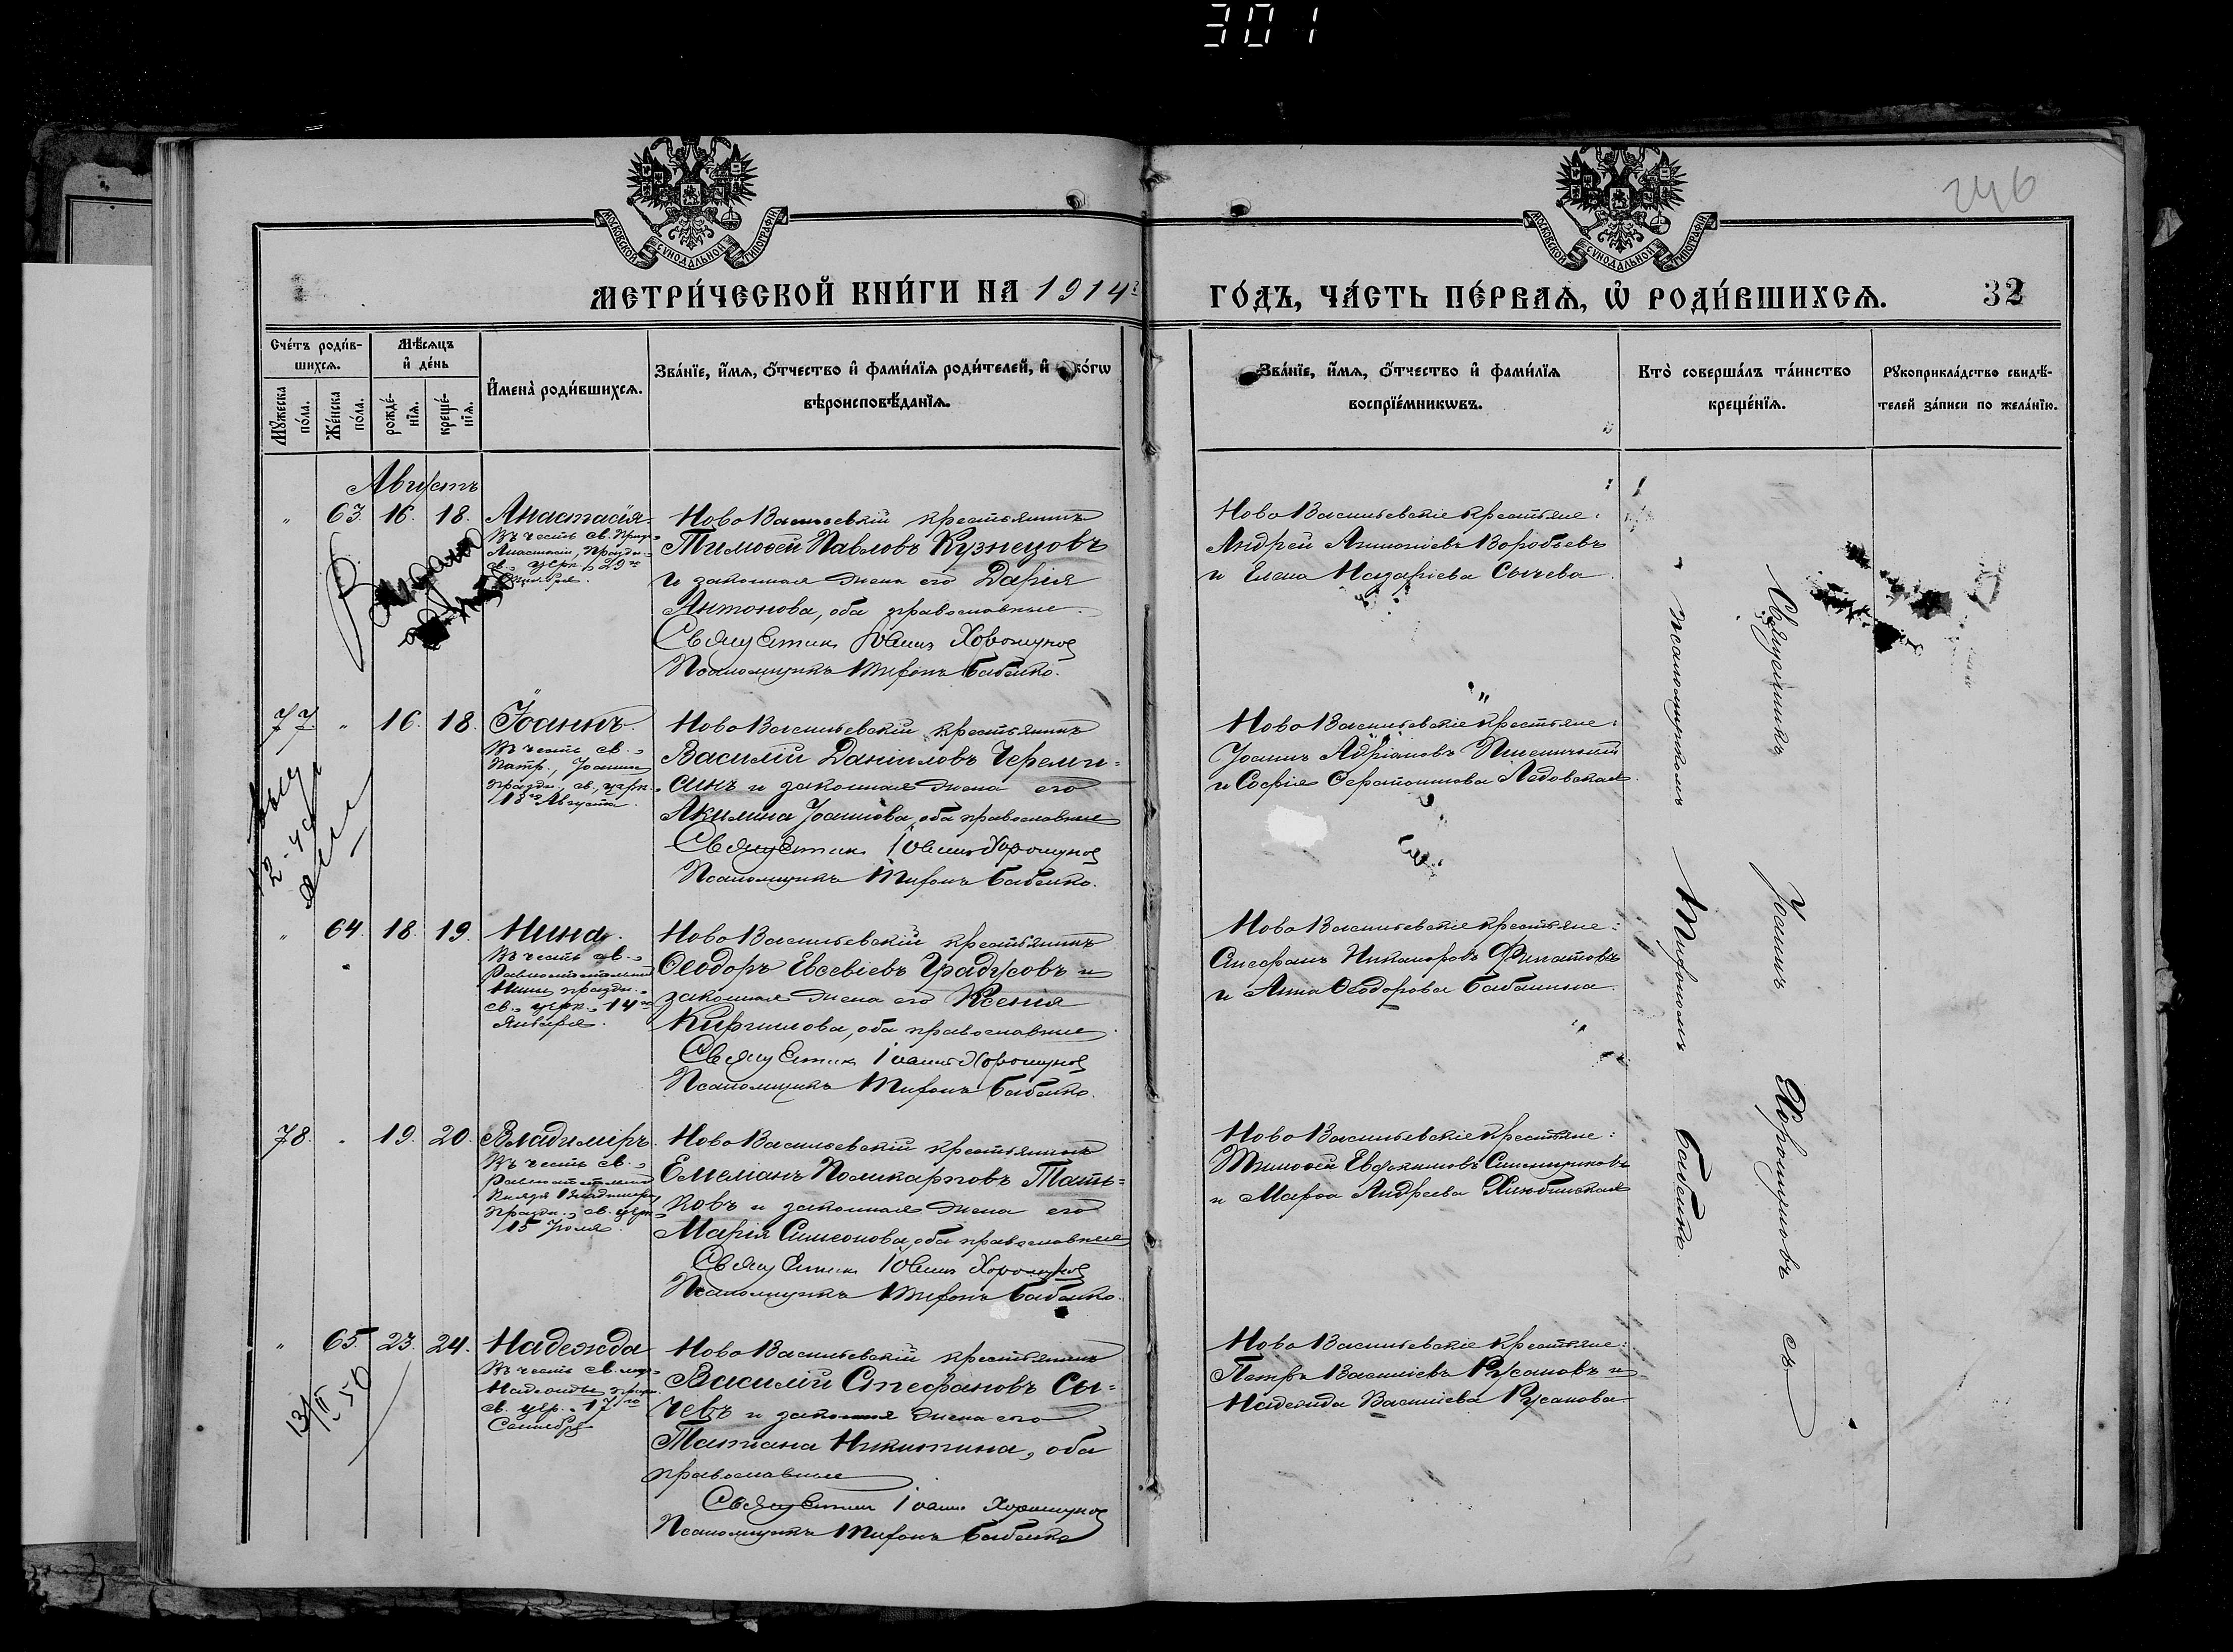 301
246
МОСКОВСКОЙ СѴНОДАЛЬНОЙ ТИПОГРАФІИ
МОСКОВСКОЙ СѴНОДАЛЬНОЙ ТИПОГРАФІИ
МЕТРИ́ЧЕСКОЙ КНИ́ГИ НА 1914 г
ГО́ДЪ, ЧА́СТЬ ПЕ́РВАѦ, Ѡ҆ РОДИ́ВШИХСѦ.
32
Сче́тъ роди́в-
шихсѧ.
Мꙋ́жеска по́ла.
Же́нска по́ла.
Мѣ́сѧцъ
и҆ де́нь
рожде́-нїѧ.
креще́-нїѧ.
И҆мена̀ роди́вшихсѧ.
Зва́нїе, и҆́мѧ, ѻ҆́тчество и҆ фами́лїѧ роди́телей, и҆ ко́гѡ
вѣроисповѣ́данїѧ.
Зва́нїе, и҆́мѧ, ѻ҆́тчество и҆ фами́лїѧ
воспрїе́мникѡвъ.
Кто̀ соверша́лъ та́инство
креще́нїѧ.
Рꙋкоприкла́дство свидѣ́-
телей за́писи по жела́нїю.
Августъ
" 63. 16. 18. Анастасія
Въ честь св.
св. церк. 29го
Ново Васильевскій крестьянинъ
Тимоѳей Павловъ Кузнецовъ
и законная жена его Дарія
Антонова, оба православные.
Священник Іоанн Хорошунов
Псаломщикъ Тифонъ Бабенко.
Ново Васильевскіе крестьяне:
Андрей Антоніевъ Воробьевъ
и Елена Назаріева Сычева.
77. " 16. 18. Іоаннъ.
Въ честь св.
Патр. Іоанна
празд. св. церк.
18го Августа.
Ново Васильевскій крестьянинъ
Василій Даніиловъ Череми=
синъ и законная жена его
Акилина Іоаннова, оба православные
Священник Іоанн Хорошунов
Псаломщикъ Тифонъ Бабенко.
Ново Васильевскіе крестьяне:
Іоаннъ Адріановъ Пшеничный
и Софія Ледовская.
" 64. 18. 19. Нина.
Въ честь св.
Нины праздн.
св. церк. 14го
Января.
Ново Васильевскій крестьянинъ
Ѳеодоръ Евсевіевъ Градусовъ и
законная жена его Ксенія
Кириллова, оба православные.
Священник Іоанн Хорошунов
Псаломщикъ Тифонъ Бабенко.
Ново Васильевскіе крестьяне:
Стефанъ Никаноровъ Филатовъ
и Анна Ѳеодорова Бабанина.
78. " 19. 20. Владиміръ.
Въ честь св.
Князя Владиміра
праздн. св. церк.
15 Іюля.
Ново Васильевскій крестьянинъ
Емеліанъ Поликарповъ Тать=
ковъ и законная жена его
Марія Симеонова, оба православные
Священник Іоанн Хорошунов
Псаломщикъ Тифонъ Бабенко.
Ново Васильевскіе крестьяне:
Тимоѳей Евдокимовъ
и Марѳа Андреева
" 65. 23. 24. Надежда
Въ честь св. муч.
Надежды
св. церк. 17го
Сентября
13/II 50
Ново Васильевскій крестьянинъ
Василій Стефановъ Сы=
чевъ и законная жена его
Татіана Никитина, оба
православные
Священник Іоанн Хорошунов
Псаломщикъ Тифонъ Бабенко
Ново Васильевскіе крестьяне:
Петръ Василіевъ Русановъ и
Надежда Василіева Русанова.
Священникъ Іоаннъ Хорошуновъ съ
псаломщикомъ Тифономъ Бабенко